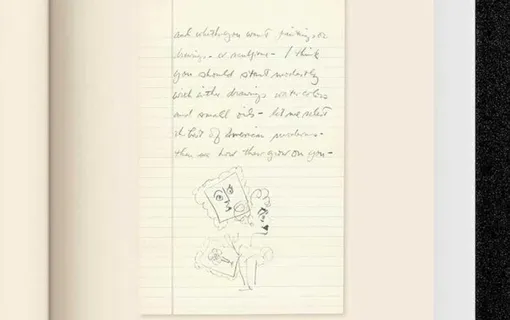 and whether you want paintings or
drawings - or sculpture - I think
you should start modestly
with either drawings water colors
and small oils - let me select
the best of American moderns -
then see how they grow on you -